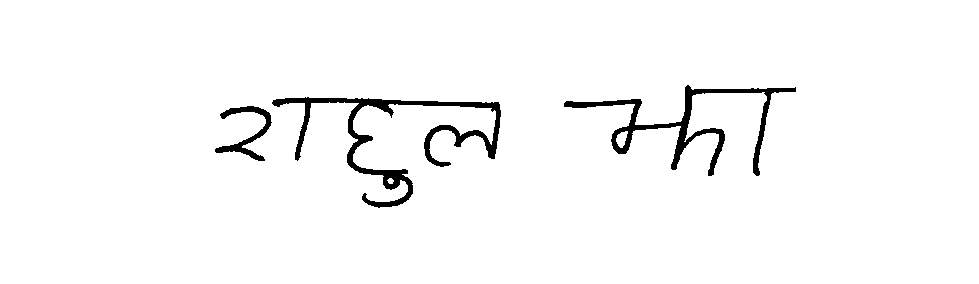 राहुल झा